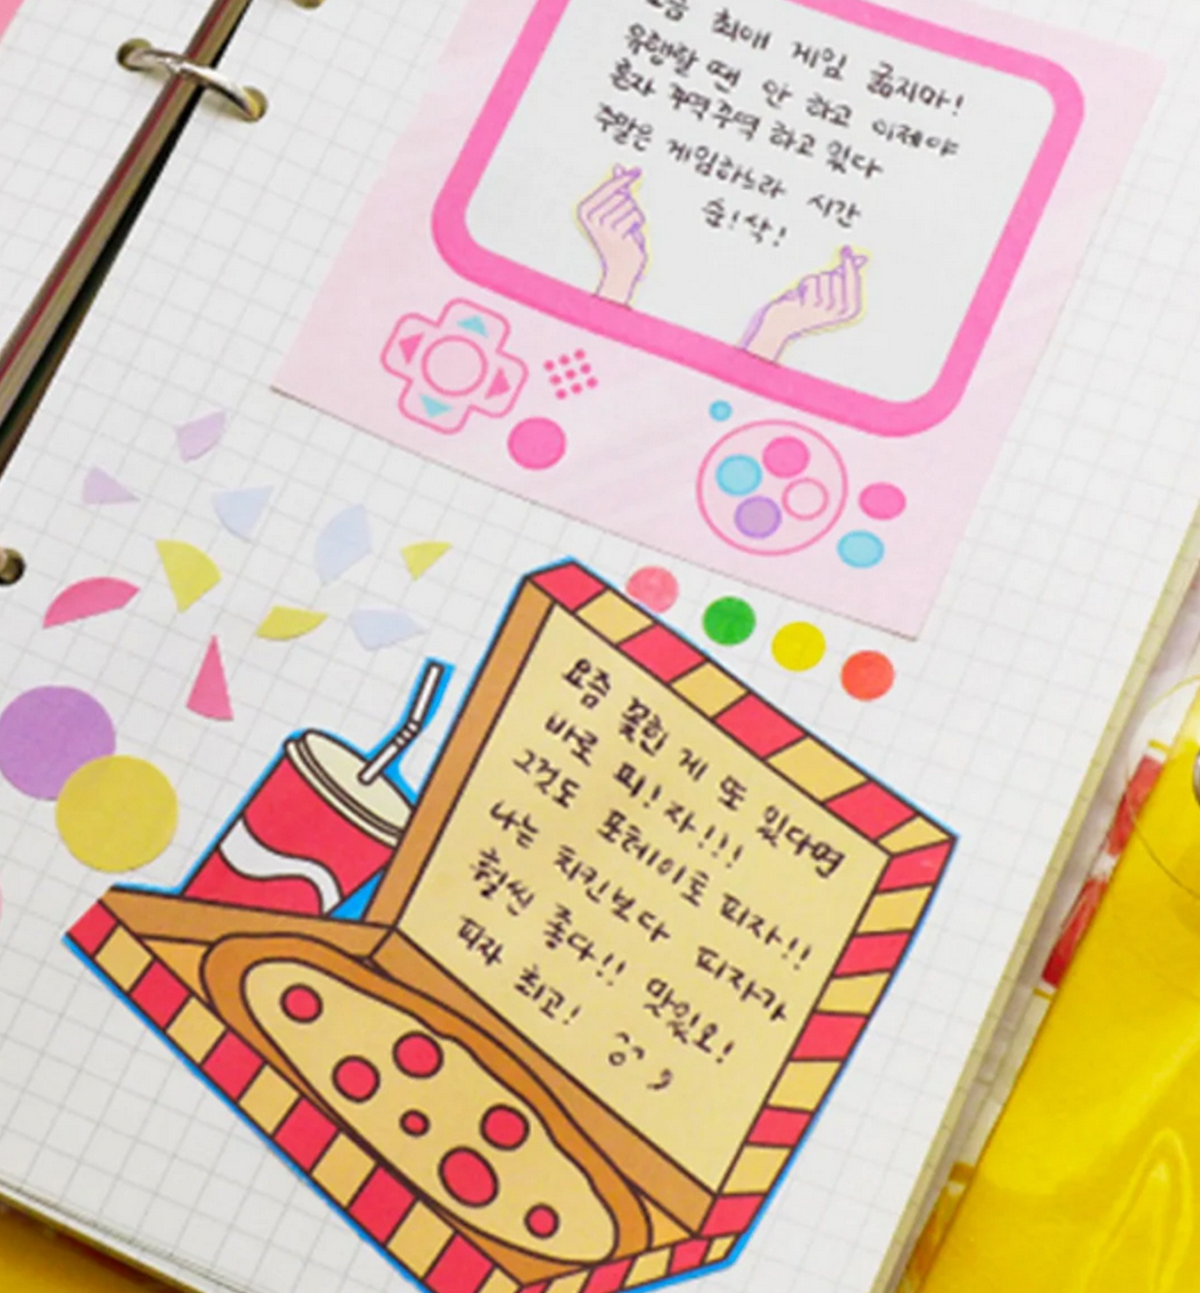 요즘 최애 게임 굶지마!
유행할 땐 안 하고 이제야
혼자 주덕주덕 하고 있다
주말은 게임하느라 시간
순!삭!
요즘 꽂힌 게 또 있다면
바로 피!자!!!
그것도 포테이토 피자!!
나는 치킨보다 피자가
훨씬 좋다!! 맛있오!
피자 최고!